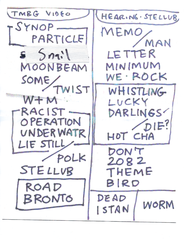 TMBG VIDEO
SYNOP
PARTICLE
S Smil
MOONBEAM
SOME/
TWIST
W+M
RACIST
OPERATION
UNDERWATR
LIE STILL/
POLK
STELLUB
ROAD
BRONTO
HEARING STELLUB
MEMO/
MAN
LETTER
MINIMUM
WE·ROCK
WHISTLING
LUCKY
DARLINGS/
DIE?
HOT CHA
DON'T
2082
THEME
BIRD
DEAD
ISTAN
WORM